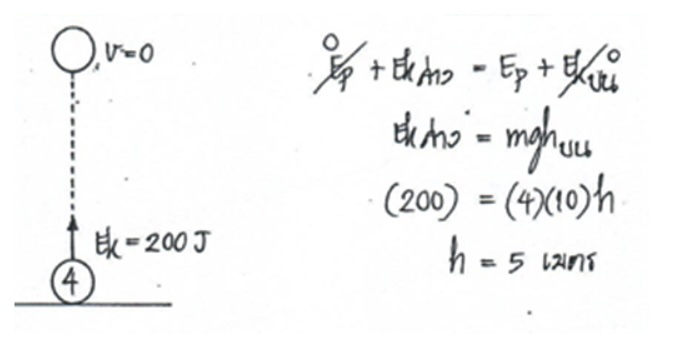 v=0
Ek = 200 J
4
0 Ep + Ekล่าง = Ep + Ekบน 0
Ekล่าง = mghบน
(200) = (4)(10)h
h = 5 เมตร